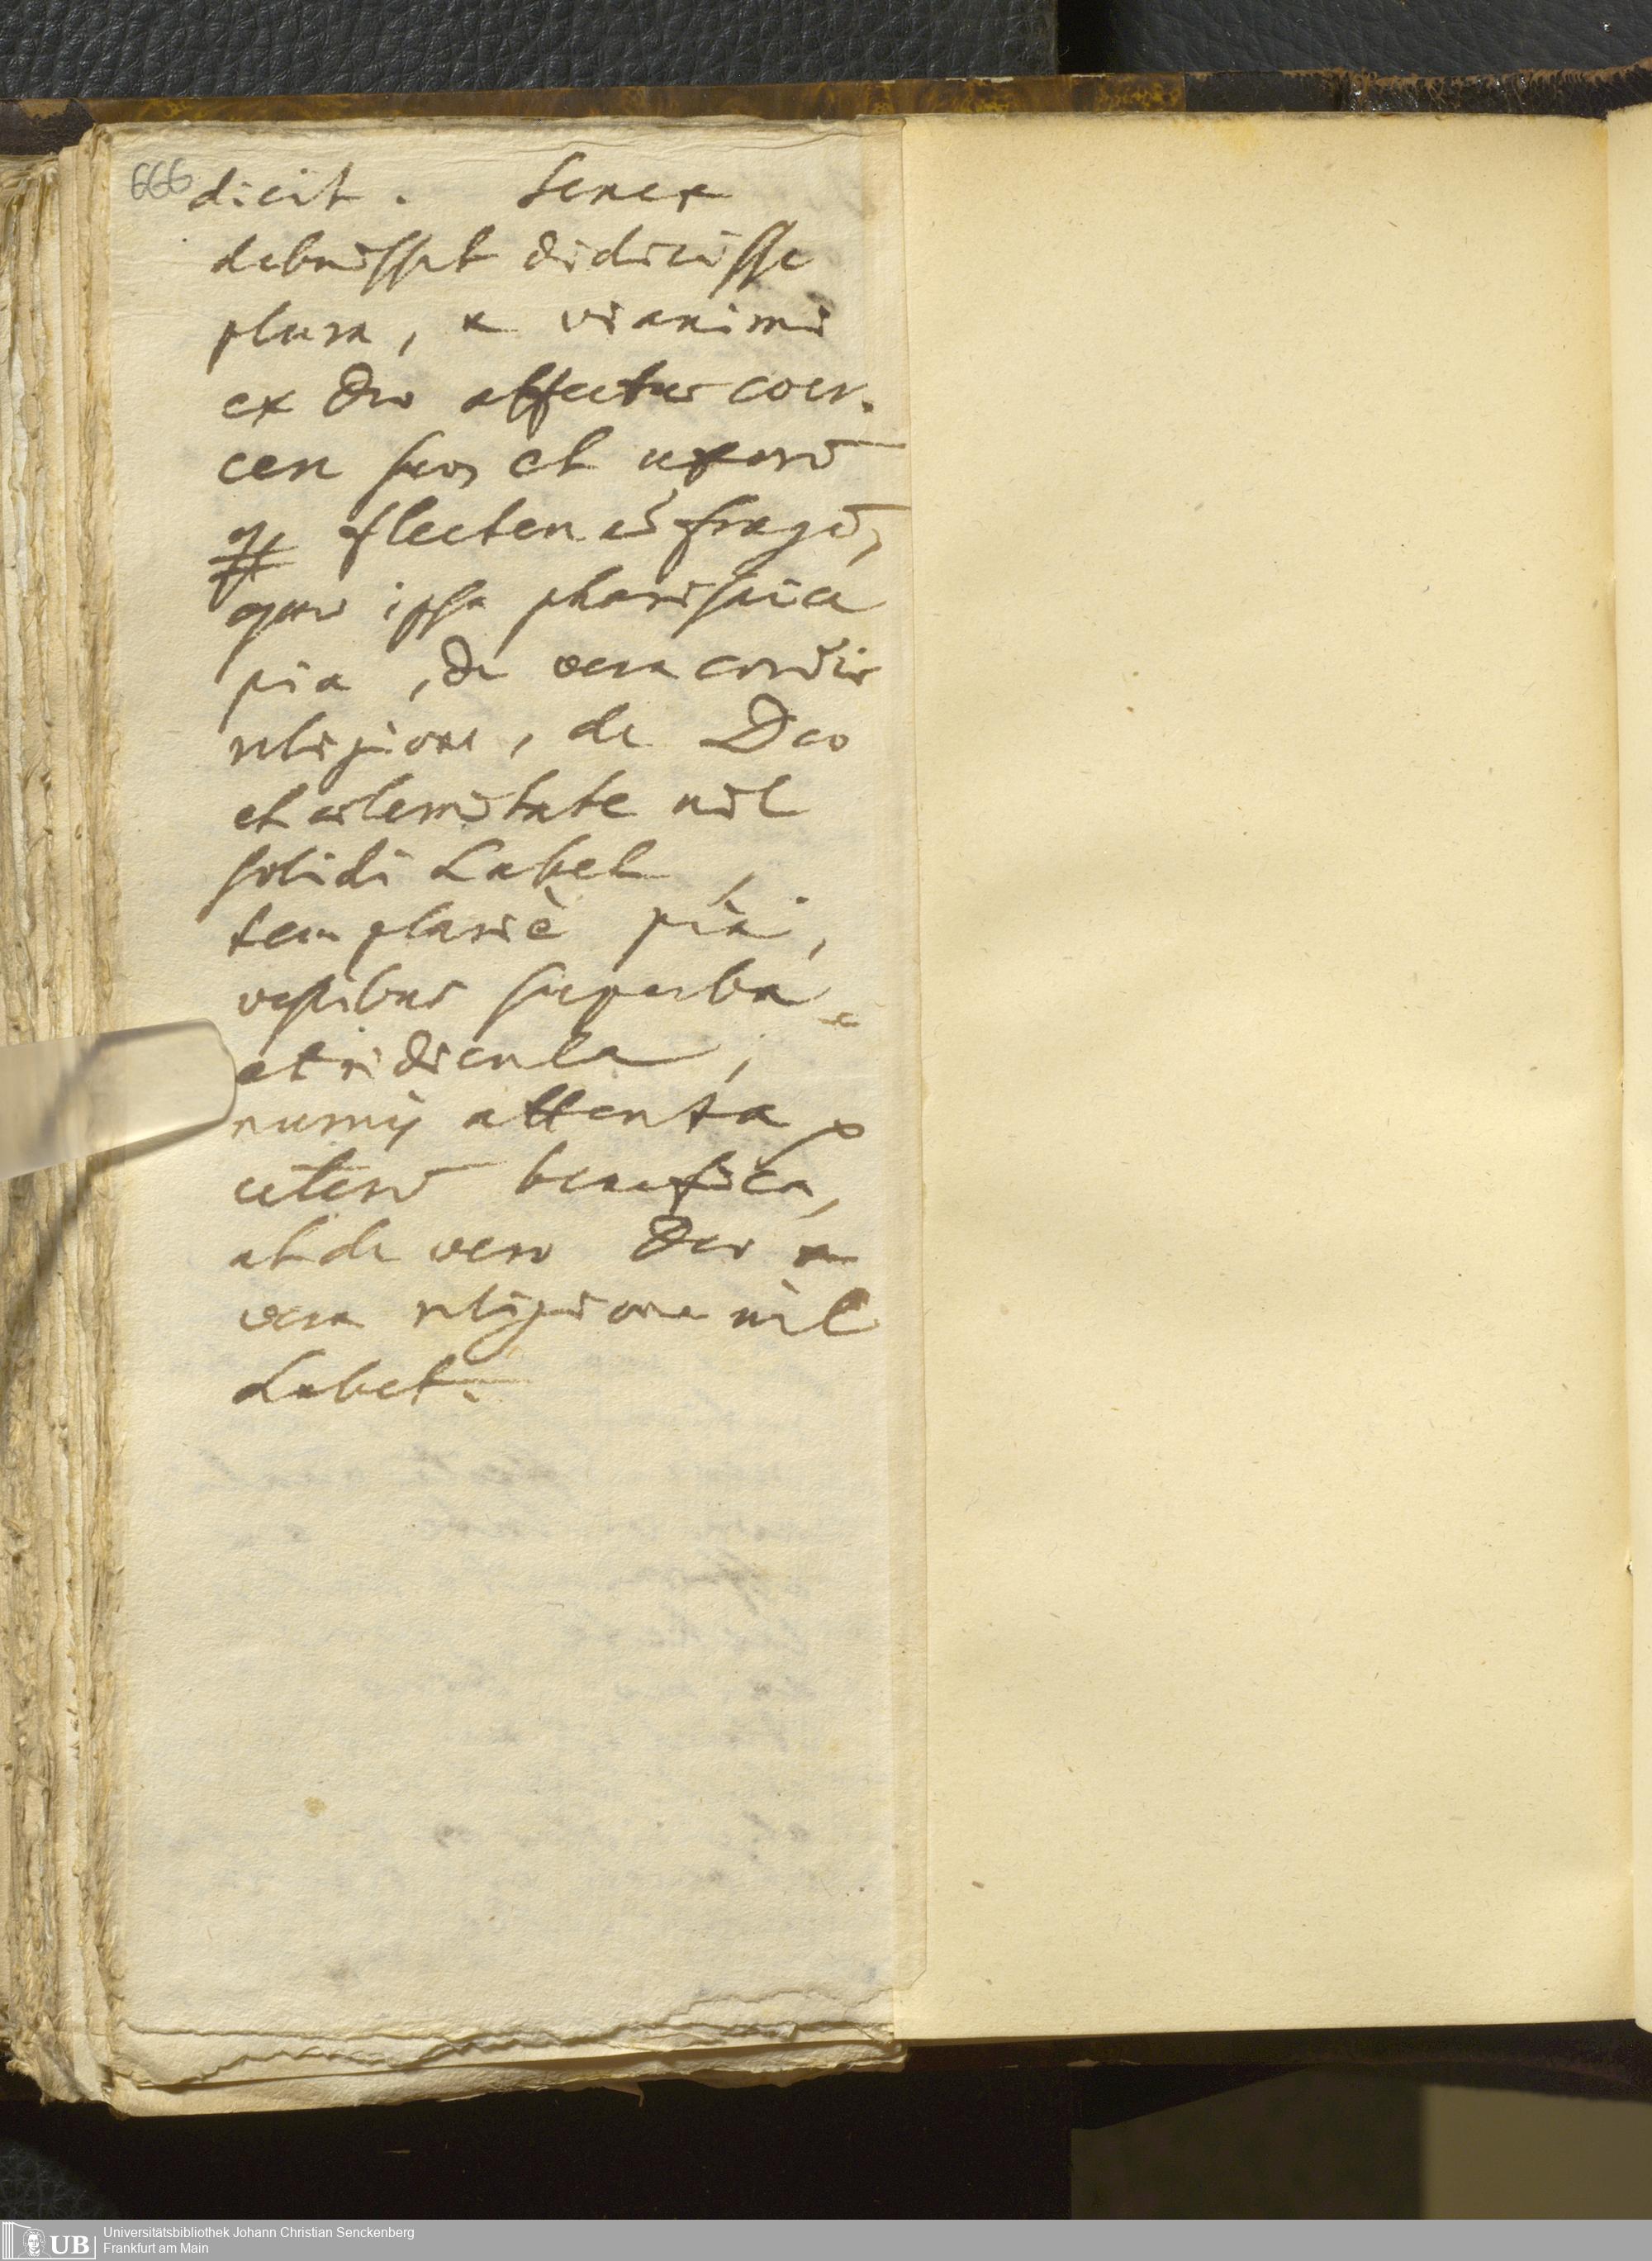 666
dicit. Senex
debuisset didicisse
plura, & vi animi
ex Deo affectus coer-
cere suos et uxorē
flectere et
quae ipsa pharisaice
pia, de vera cordis
religione, de Deo
et aeternitate nil
solidi habet
templariè pia,
vestibus superba
et ridicula,
numis attenta
ceterū benefica,
at de vero Deo &
vera religione nil
habet.
UB
Universitätsbibliothek Johann Christian Senckenberg
Frankfurt am Main